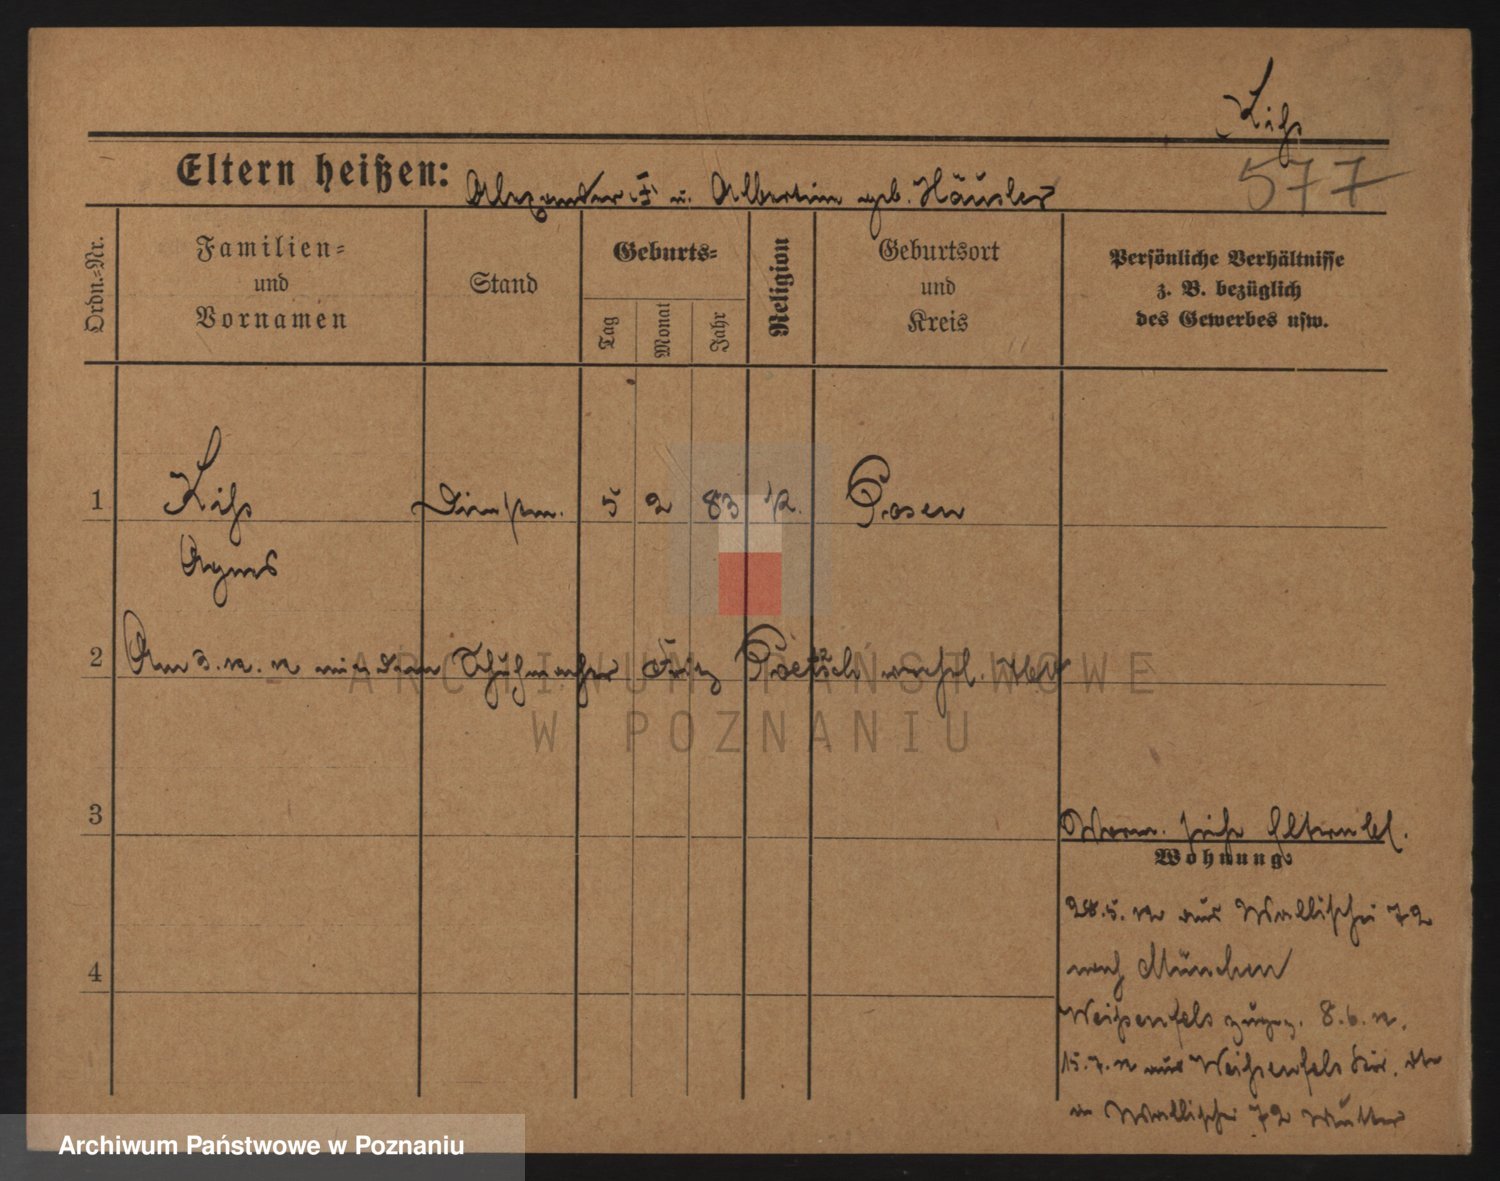 Kihs
577
Eltern heißen: Alexander † u. Albertine geb. Häusler
Ordn.=Nr.
Familien=
und
Vornamen
Stand
Geburts=
Tag
Monat
Jahr
Religion
Geburtsort
und
Kreis
Persönliche Verhältnisse
z. B. bezüglich
des Gewerbes usw.
1 Kihs Dienstm. 5 2 83 Posen
Agnes
2 Am 3. mit dem Schuhmacher Fritz Poetsch
3
Worm. siehe Elternbl.
Wohnung:
28.5. aus Wallischei 72
4
nach München
Weißenfels zugez. 8.6.
15.7. aus Weißenfels
in Wallischei 72 Mutter
ARCHIWUM PAŃSTWOWE
W POZNANIU
Archiwum Państwowe w Poznaniu